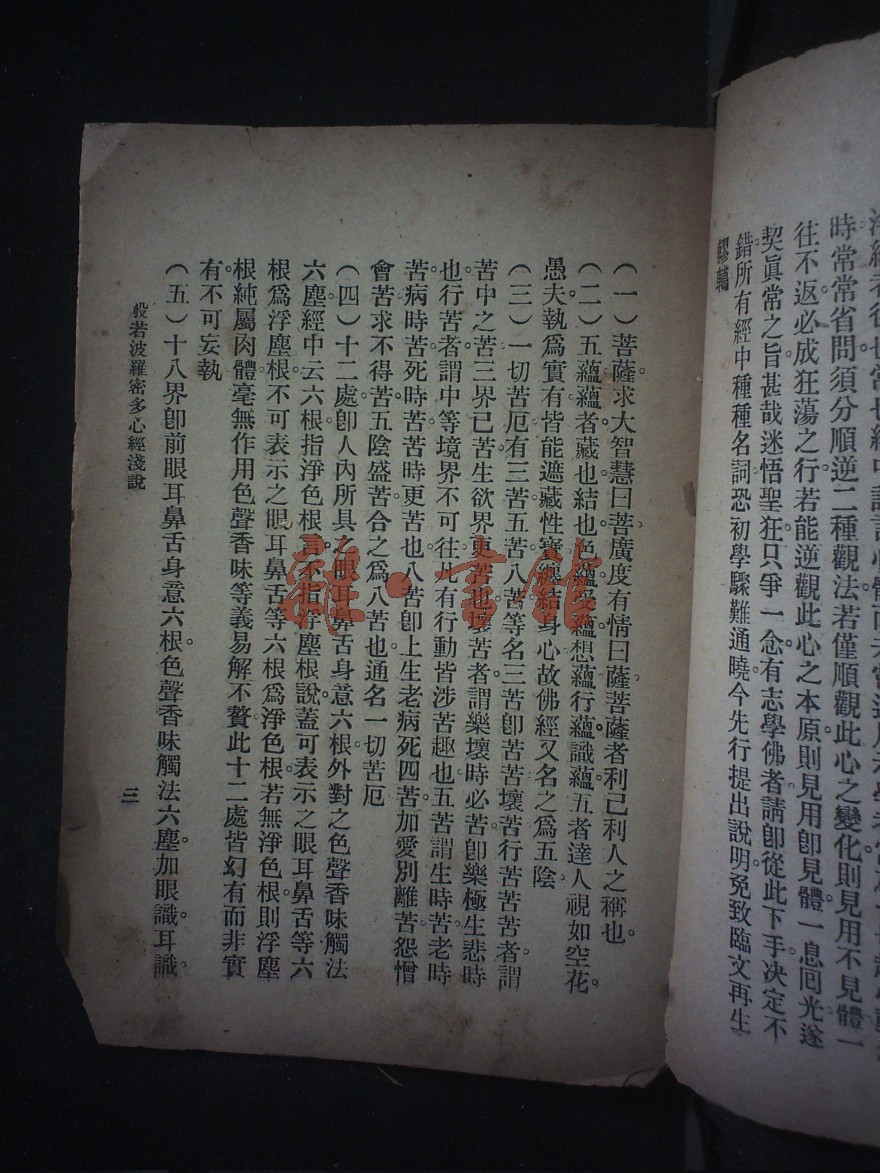 時常常省問須分順逆二種觀法若僅順觀此心之變化則見用不見體一
往不返必成狂蕩之行若能逆觀此心之本原則見用卽見體一息囘光遂
契眞常之旨甚哉迷悟聖狂只爭一念有志學佛者請卽從此下手决定不
錯所有經中種種名詞恐初學驟難通曉今先行提出說明免致臨文再生
轇轕
(一)菩薩求大智慧曰菩廣度有情曰薩菩薩者利己利人之稱也。
(二)五蘊蘊者藏也結也色蘊受蘊想蘊行蘊識蘊五者達人視如空花。
愚夫執爲實有皆能遮藏性寶纏結身心故佛經又名之爲五陰
(三)一切苦厄有三苦五苦八苦等名三苦卽苦苦壞苦行苦苦苦者謂
苦中之苦三界已苦生欲界更苦也壞苦者謂樂壞時必苦卽樂極生悲時
也行苦者謂中等境界不可往凡有行動皆涉苦趣也五苦謂生時苦老時
苦病時苦死時苦苦時更苦也八苦卽上生老病死四苦加愛別離苦怨憎
會苦求不得苦五陰盛苦合之爲八苦也通名一切苦厄
(四)十二處卽人內所具之眼耳鼻舌身意六根外對之色聲香味觸法
六塵經中云六根指淨色根言不指浮塵根說蓋可表示之眼耳鼻舌等六
根爲浮塵根不可表示之眼耳鼻舌等六根爲淨色根若無淨色根則浮塵
根純屬肉體毫無作用色聲香味等義易解不贅此十二處皆幻有而非實
有不可妄執
(五)十八界卽前眼耳鼻舌身意六根色聲香味觸法六塵加眼識耳識
般若波羅密多心經淺說
三